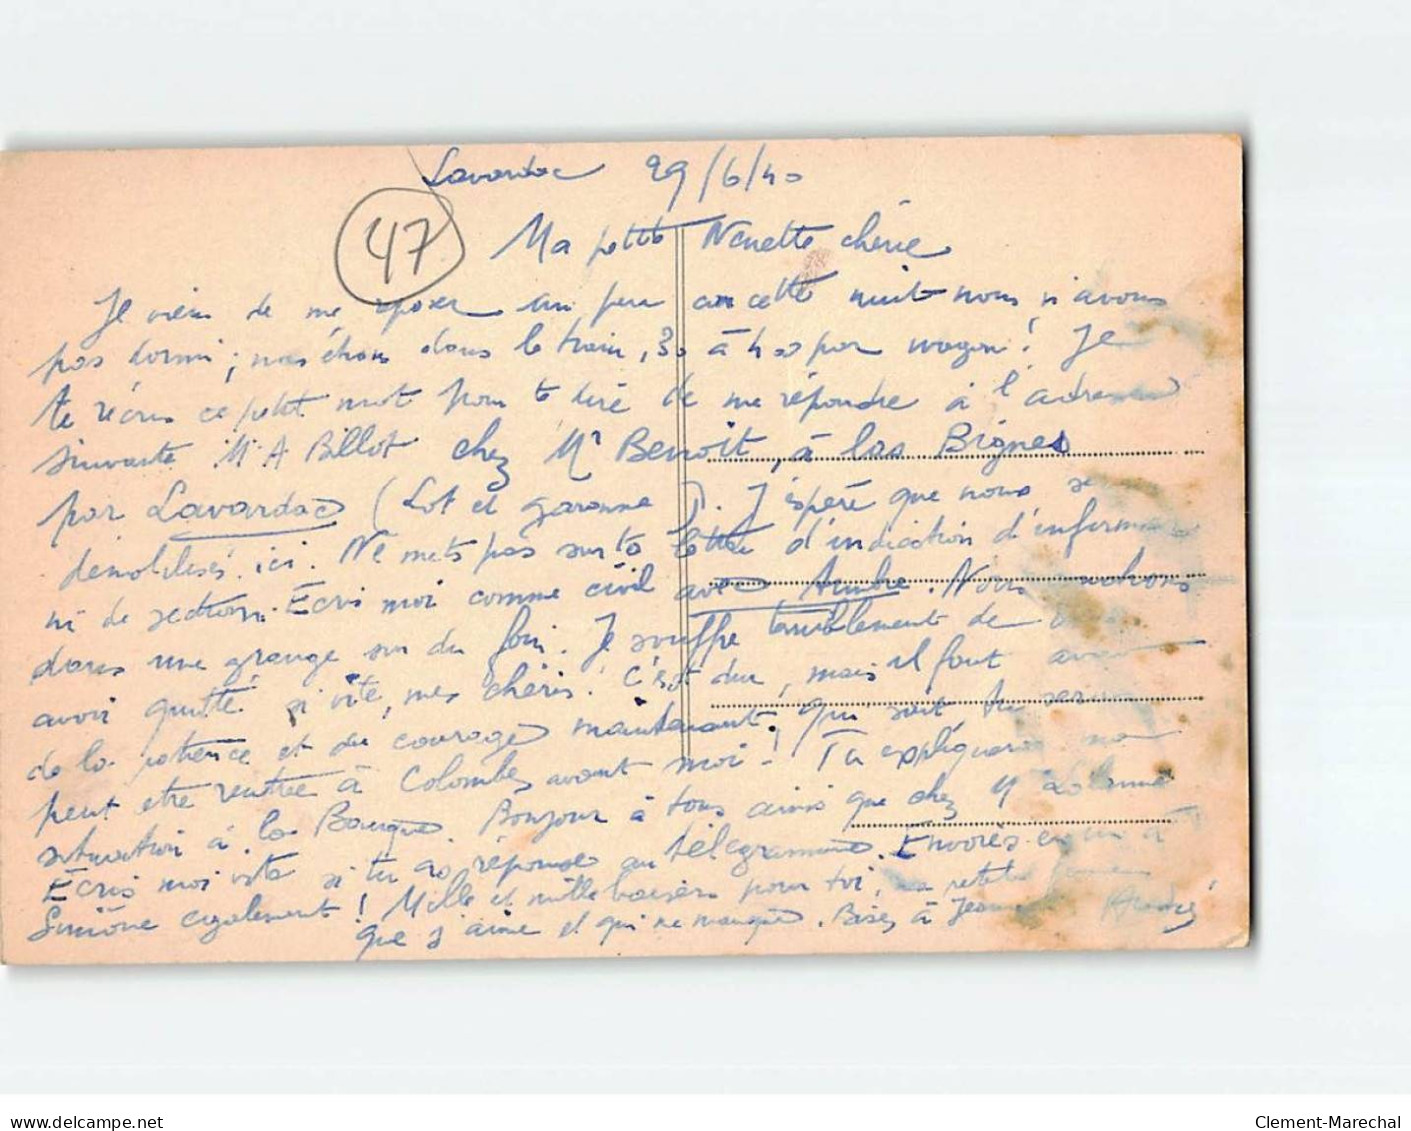 Lavardac 29/6/40
47
Ma petite Nenette chérie
Je viens de me reposer un peu car cette nuit nous n'avons
pas dormi ; nous étions dans le train, 30 à 40 par wagon ! Je
te récris ce petit mot pour te dire de me répondre à l'adresse
suivante M. A Billot chez Mr Benoit, à las Bignes
par Lavardac (Lot et garonne). J'espère que nous se
démobilisés ici. Ne mets pas sur ta lettre d'indication d'infirmier
ni de section. Ecris moi comme civil avec timbre. Nous couchons
dans une grange sur du foin. Je souffre terriblement de
avoir quitté si vite, mes chéris ! C'est dur, mais il faut avoir
de la patience et du courage maintenant. Qui sait, tu seras
peut etre rentrée à Colombes avant moi ! Tu expliqueras ma
situation à la Bourgue. Bonjour à tous ainsi que chez M
Ecris moi vite si tu as réponse au télégramme. Envoies en un à
Simone également ! Mille et mille baisers pour toi, ma petite
que j'aime et qui me manque. Bises à André
delcampe.net
Clement-Marechal